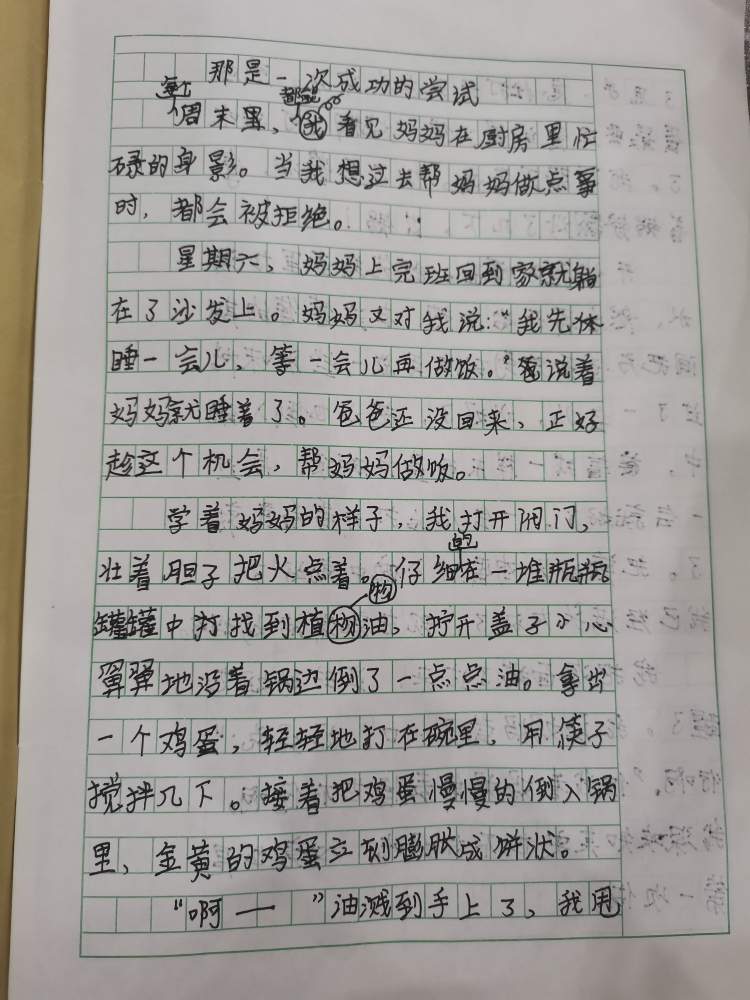 那是一次成功的尝试
每个周末里，都能看见妈妈在厨房里忙
碌的身影。当我想过去帮妈妈做点事
时，都会被拒绝。
星期六，妈妈上完班回到家就躺
在了沙发上。妈妈又对我说：“我先休
睡一会儿，等一会儿再做饭。”说着
妈妈就睡着了。爸爸还没回来，正好
趁这个机会，帮妈妈做饭。
学着妈妈的样子，我打开阀门，
壮着胆子把火点着。仔细在一堆瓶瓶
罐罐中打找到植物油，拧开盖子小心
翼翼地沿着锅边倒了一点点油。拿出
一个鸡蛋，轻轻地打在碗里，用筷子
搅拌几下。接着把鸡蛋慢慢的倒入锅
里，金黄的鸡蛋立刻膨胀成饼状。
“啊——”油溅到手上了，我甩